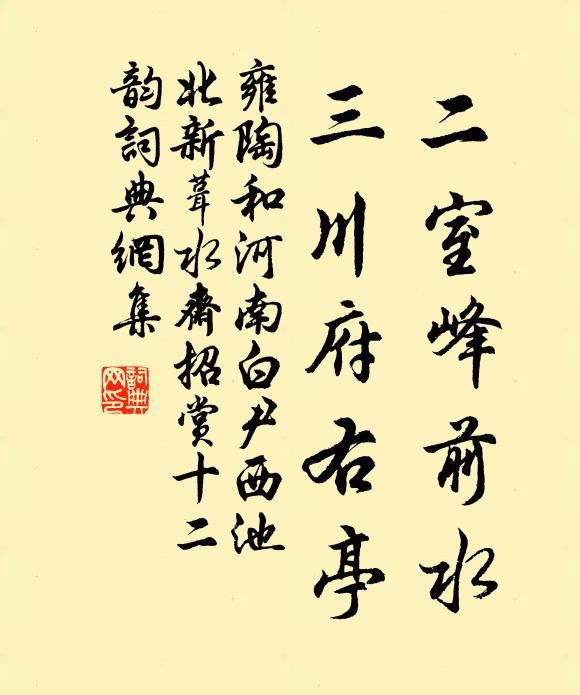 二室峰前水
三川府右亭
雍陶和河南白尹西池
北新葺水齋招賞十二
韵詞典網集
詞典
网印